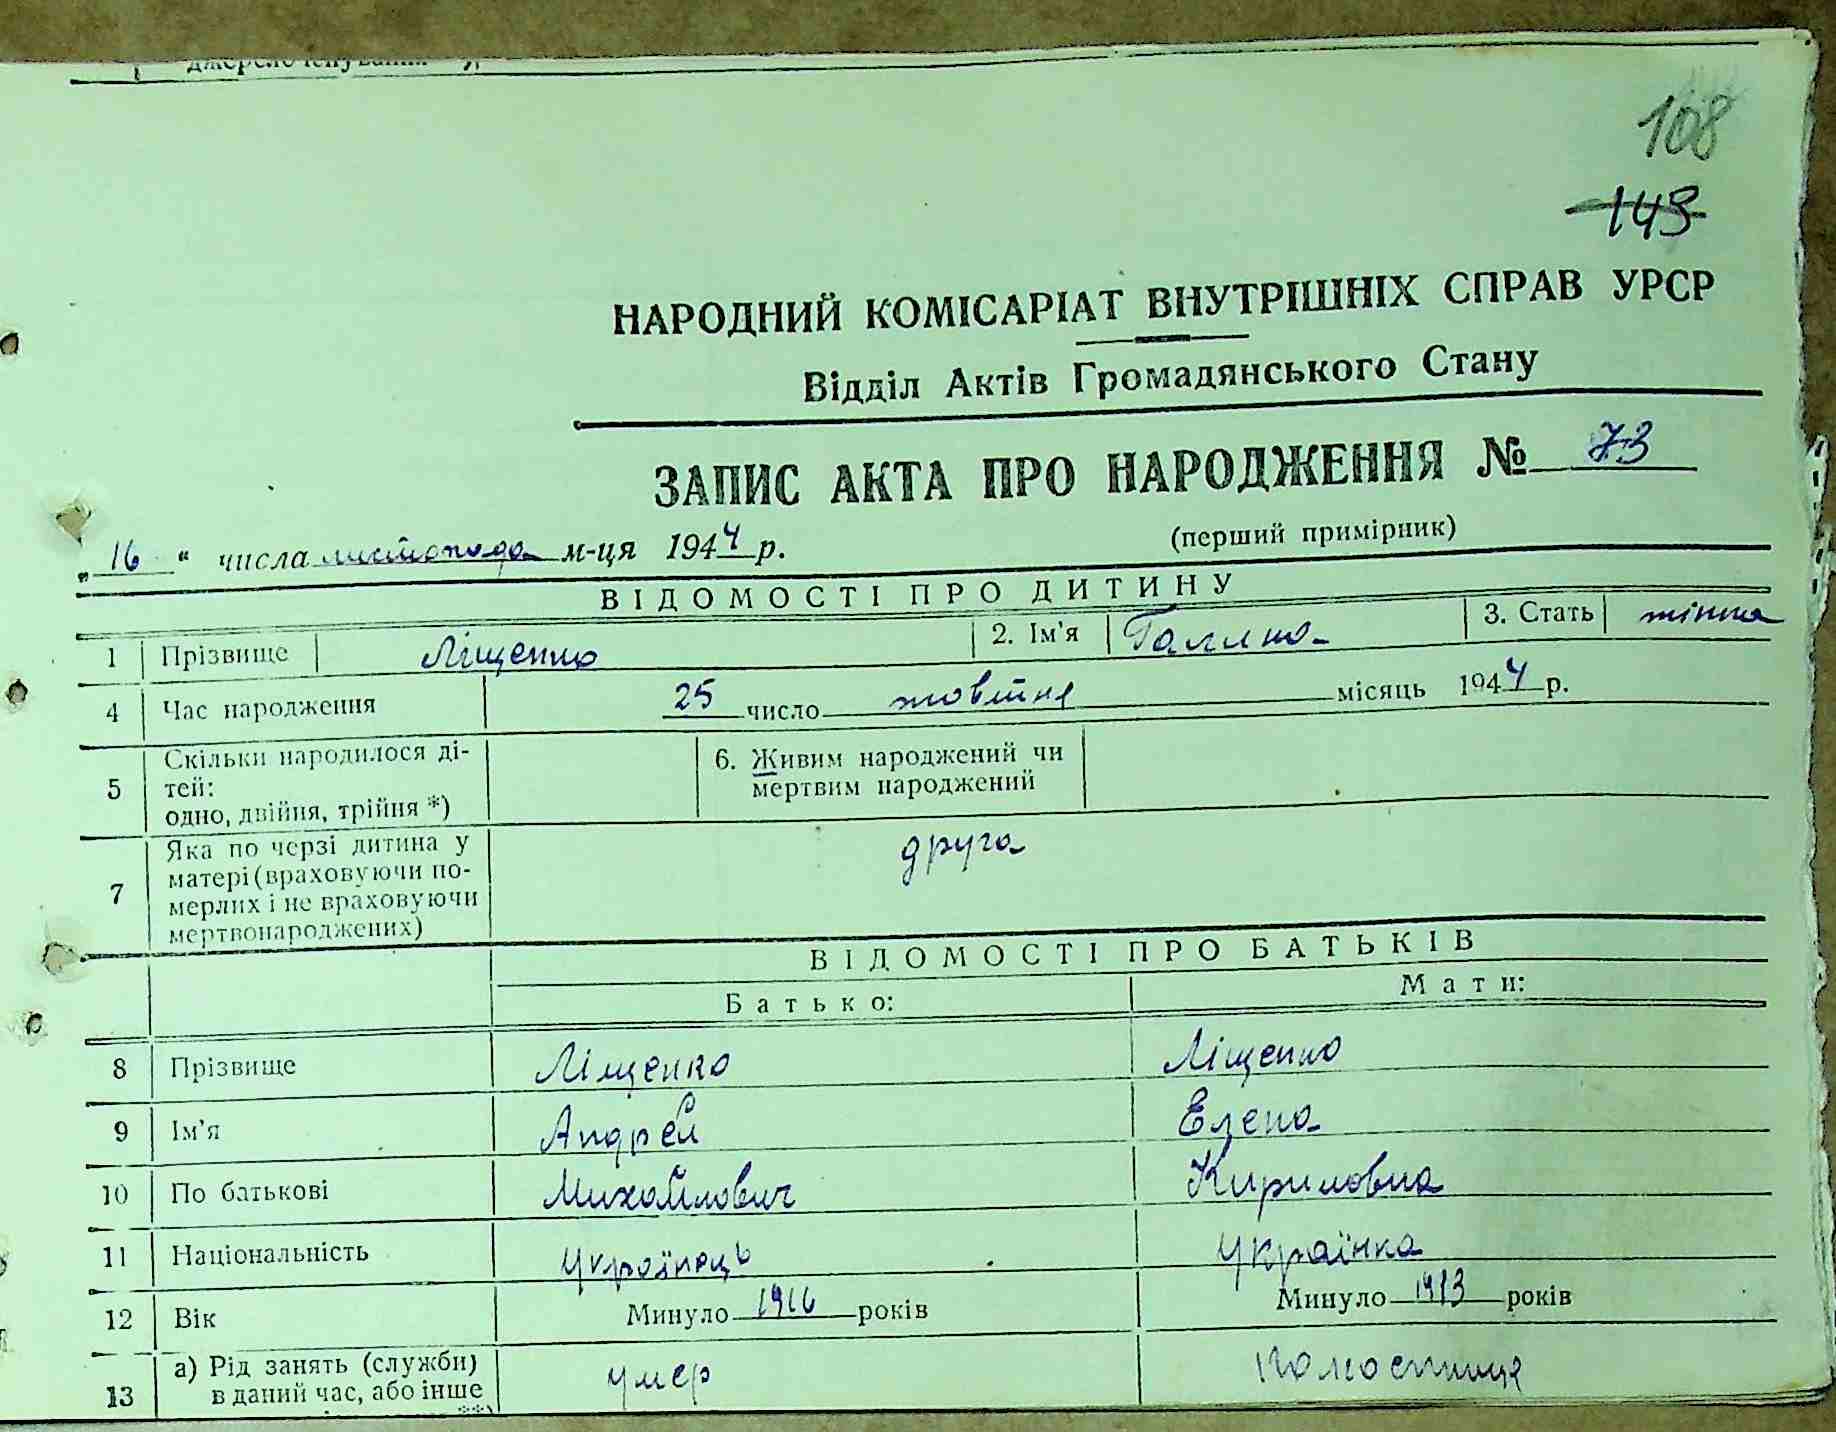 108
143
НАРОДНИЙ КОМІСАРІАТ ВНУТРІШНІХ СПРАВ УРСР
Відділ Актів Громадянського Стану
ЗАПИС АКТА ПРО НАРОДЖЕННЯ № 73
„16“ числа листопада м-ця 1944 р. (перший примірник)
ВІДОМОСТІ ПРО ДИТИНУ
1 Прізвище Ліщенко 2. Ім'я Галина 3. Стать жінка
4 Час народження 25 число жовтня місяць 1944 р.
5 Скільки народилося ді-
тей:
одно, двійня, трійня *)
6. Живим народжений чи
мертвим народжений
7 Яка по черзі дитина у
матері (враховуючи по-
мерлих і не враховуючи
мертвонароджених)
друга
ВІДОМОСТІ ПРО БАТЬКІВ
Батько: Мати:
8 Прізвище Ліщенко Ліщенко
9 Ім'я Андрей Елена
10 По батькові Михайлович Кириловна
11 Національність Українець Українка
12 Вік Минуло 1916 років Минуло 1913 років
13 а) Рід занять (служби)
в даний час, або інше
умер